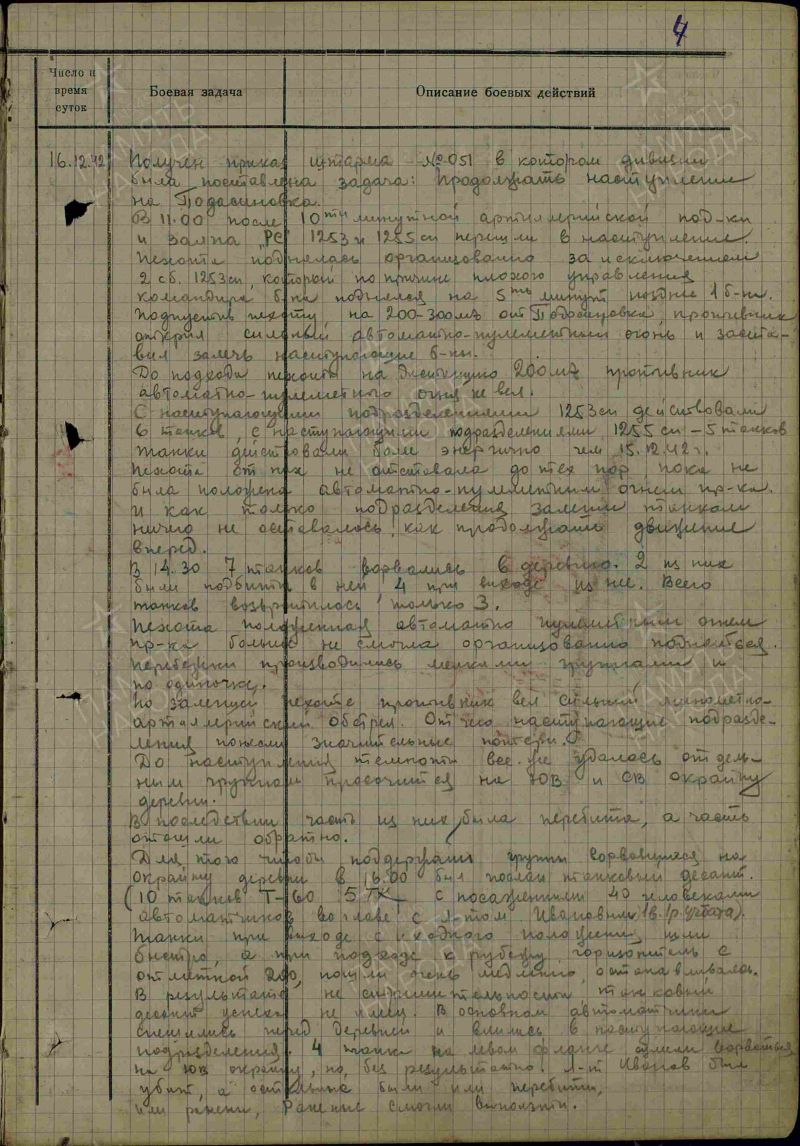 4
Число и время суток
Боевая задача
Описание боевых действий
16.12.42 Получен приказ штарма №051 в котором дивизии
была поставлена задача: продолжать наступление
на Подосиновка.
В 11.00 после 10ти минутной артиллерийской под-ки
и залпа "РС" 1253 и 1255 сп перешли в наступление.
Пехота поднялась организованно за исключением
2 сб. 1253 сп, который по причине плохого управления
командира б-на поднялся на 5ть минут позднее 1 б-на.
Подпустив пехоту, на 200-300 мт от Подосиновка, противник
открыл сильный автоматно-пулеметный огонь и заста-
вил залечь наступающие б-ны.
До подхода пехоты на дистанцию 200 мт противник
автоматно-пулеметного огня не вел.
С наступающими подразделениями 1253 сп действовали
6 танков, с наступающими подразделениями 1255 сп - 5 танков
танки действовали более энергично чем 15.12.42 г.
Пехота от них не отставала до тех пор пока не
была положена автоматно-пулеметным огнем пр-ка.
И как только подразделения залегли танкам
ничего не оставалось, как продолжать движение
вперед.
В 14.30 7 танков ворвались в деревню. 2 из них
были подбиты в ней 4 при выходе из нее. Всего
танков возвратилось только 3.
Пехота положенная автоматно пулеметным огнем
пр-ка больше не смогла организованно подняться.
Перебежки производились мелкими группами и
по одиночке.
По залегшей пехоте противник вел сильный минометно-
артиллерийский обстрел. От чего наступающие подразде-
ления понесли значительные потери.
До наступления темноты все же удалось отдель-
ным группам просочится на ЮВ и СВ окраину
деревни.
В последствии часть из них была перебита, а часть
отошли обратно.
Для того чтобы поддержать группы ворвавшихся на
окраину деревни в 16.00 был послан танковый десант.
(10 танков Т-60 5 ТК с посаженными 40 человеками
автоматчиков во главе с л-том Ивановым (в. р. учбата).
Танки при выходе с исходного положения шли
быстро, а при подходе к рубежу горизонталь с
отметкой 200, пошли очень медленно, останавливаясь.
В результате не сн решительности танковый
десант успеха не имел. В основном автоматчики
спешились перед деревней и влились в наступающие
подразделения. 4 танка на левом фланге сумели ворваться
на ЮВ окраину, но, без результатно. Л-т Иванов был
убит, а остальные были или перебиты,
или ранены, раненые смогли выползти.